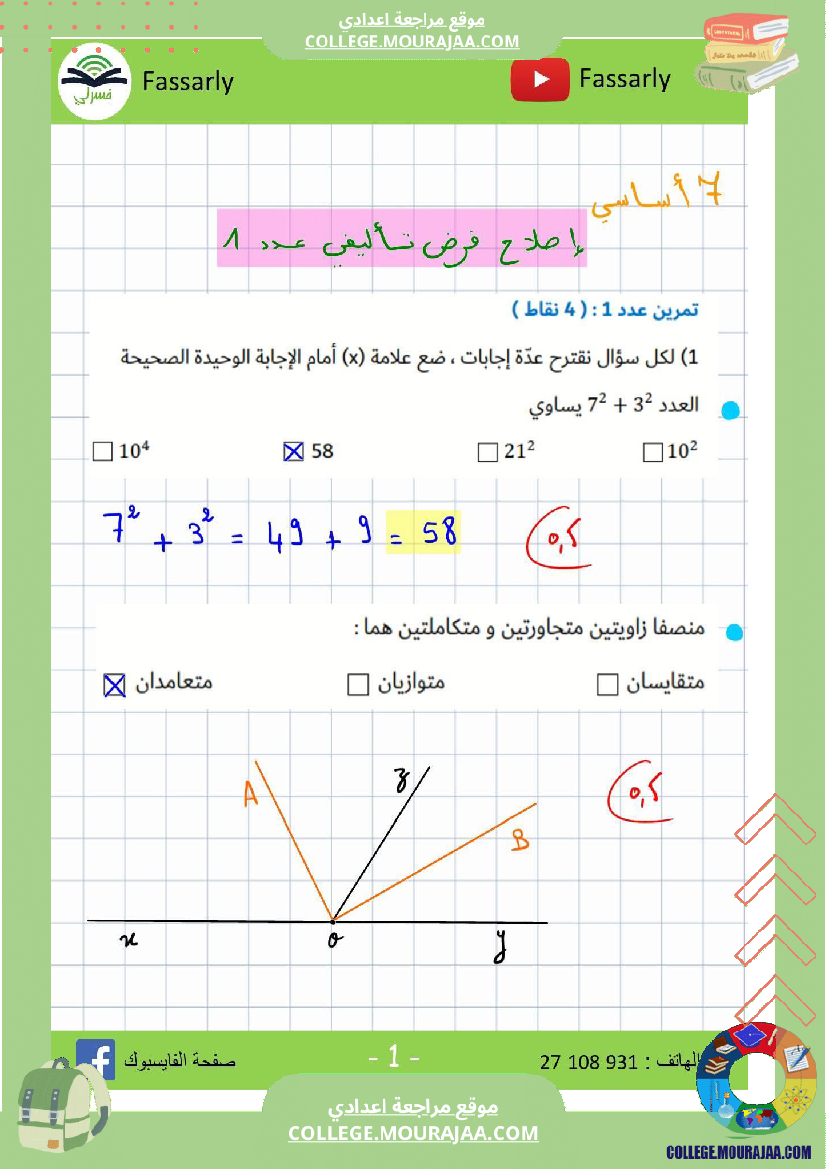 موقع مراجعة اعدادي
COLLEGE.MOURAJAA.COM
فسرلي Fassarly Fassarly
7 أساسي
إصلاح فرض تأليفي عدد 1
تمرين عدد 1 : ( 4 نقاط )
1) لكل سؤال نقترح عدّة إجابات ، ضع علامة (x) أمام الإجابة الوحيدة الصحيحة
العدد 7² + 3² يساوي
☐ 10⁴ ☒ 58 ☐ 21² ☐ 10²
7² + 3² = 49 + 9 = 58 0,5
منصفا زاويتين متجاورتين و متكاملتين هما :
☐ متقايسان ☐ متوازيان ☒ متعامدان
A z B 0,5
x o y
صفحة الفايسبوك - 1 - الهاتف : 27 108 931
موقع مراجعة اعدادي
COLLEGE.MOURAJAA.COM
COLLEGE.MOURAJAA.COM